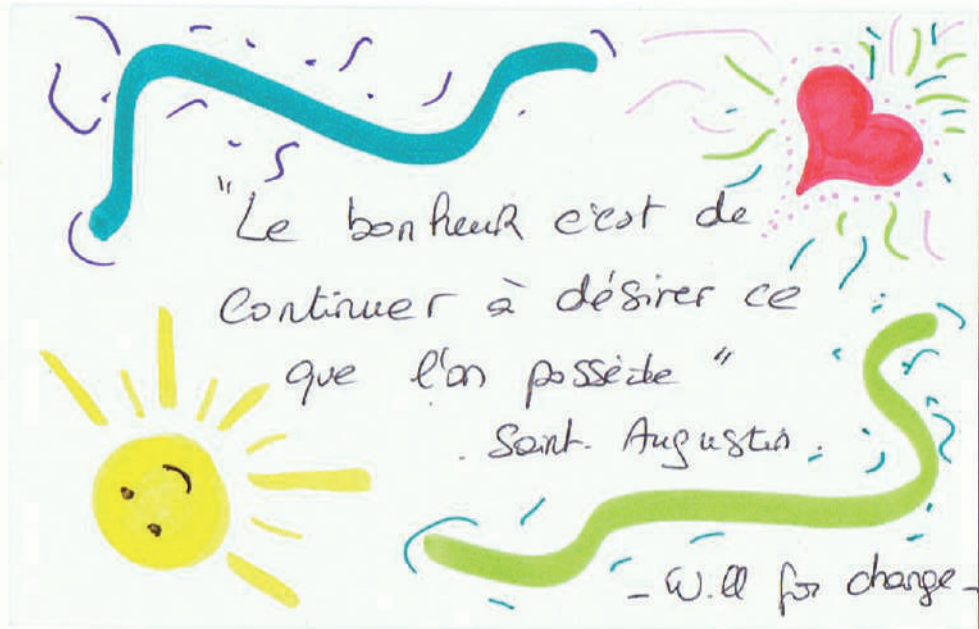 "Le bonheur c'est de
continuer à désirer ce
que l'on possède"
. Saint. Augustin.
- W.ll for change -